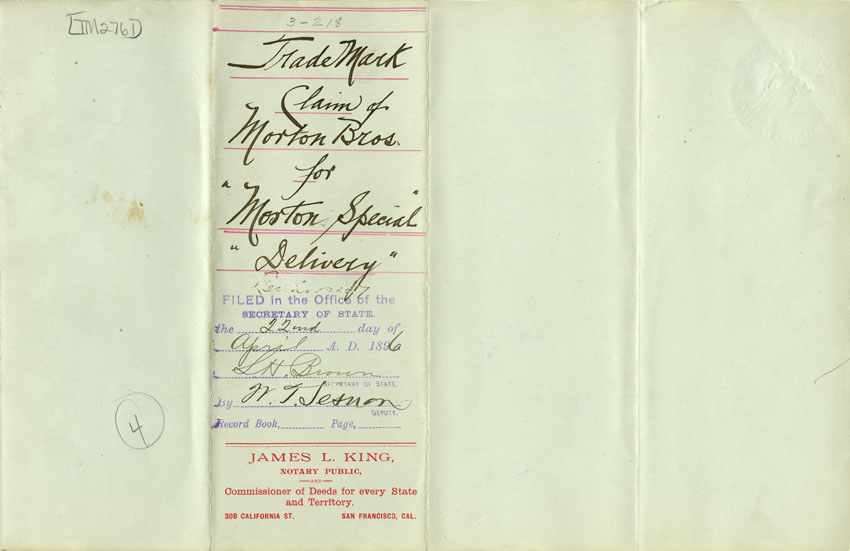 [TM2761]
3-218
Trade Mark
Claim of
Morton Bros.
for
"Morton Special"
"Delivery"
FILED in the Office of the
SECRETARY OF STATE.
the 22nd day of
April A. D. 1896
L.H. Brown
SECRETARY OF STATE.
By W. T. Sesnon
DEPUTY.
Record Book, Page,
4
JAMES L. KING,
NOTARY PUBLIC,
AND
Commissioner of Deeds for every State
and Territory.
308 CALIFORNIA ST. SAN FRANCISCO, CAL.